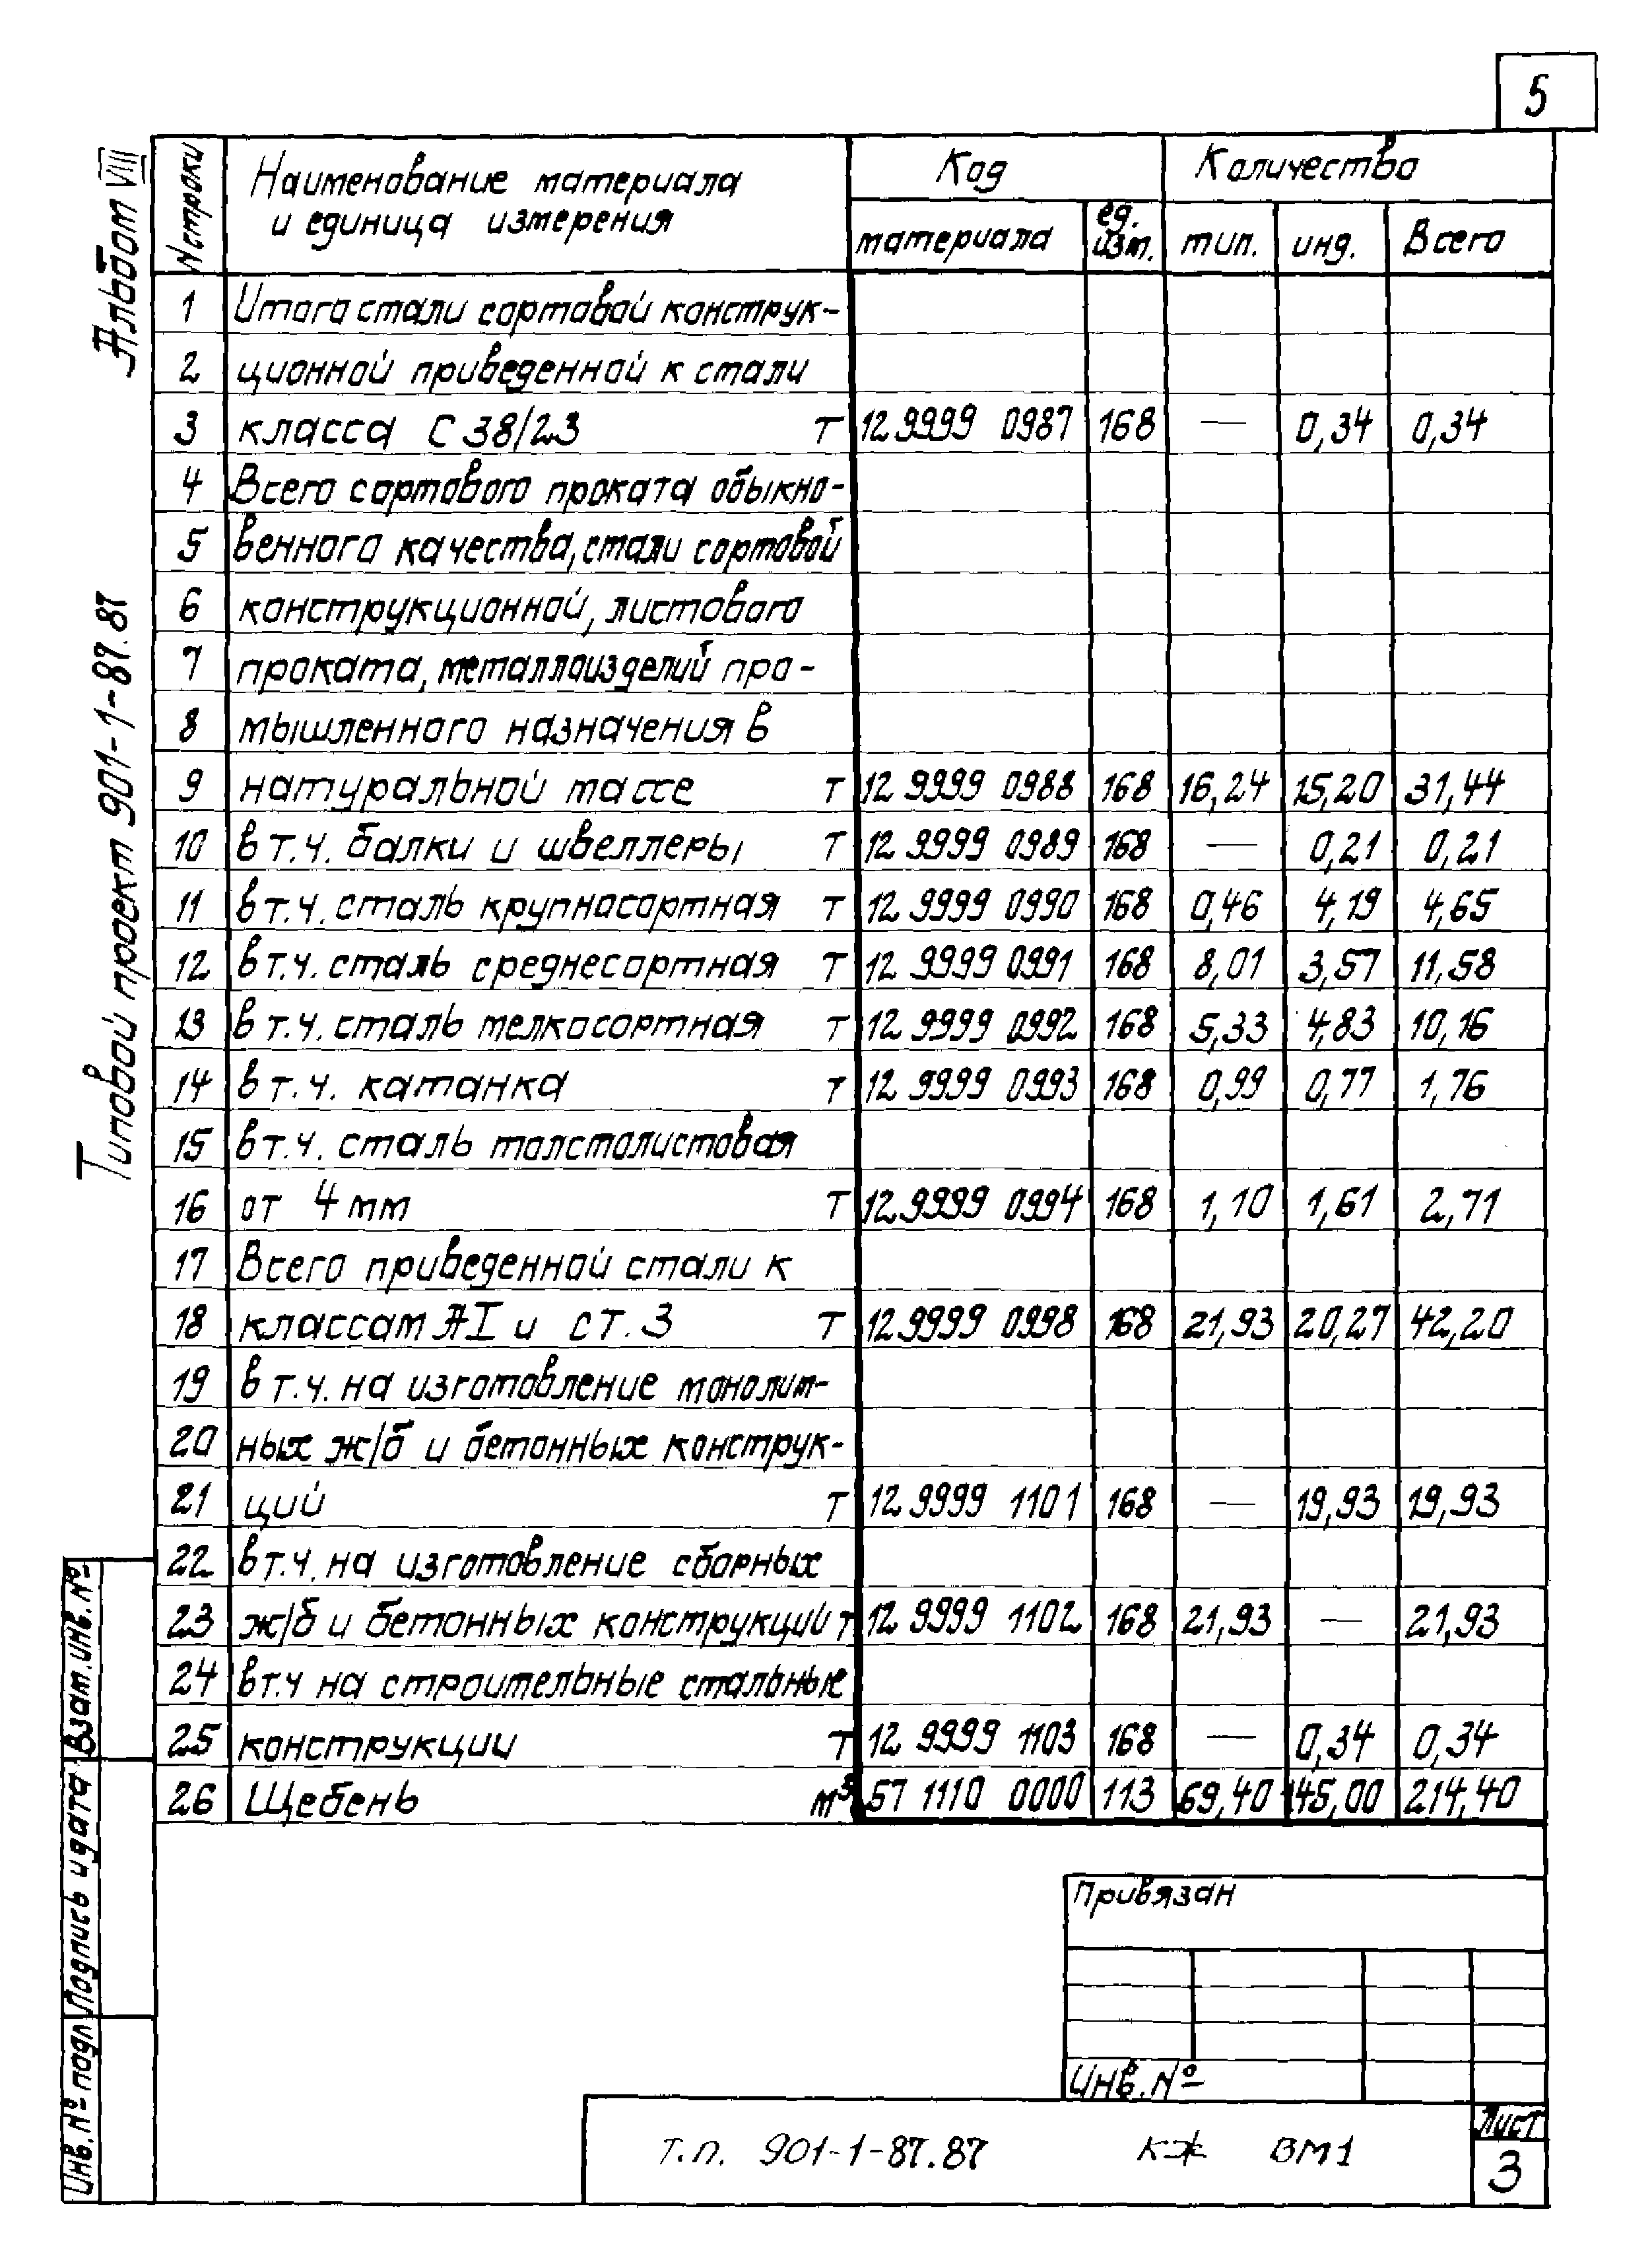 5
Альбом VIII
Типовой проект 901-1-87.87
N строки
Наименование материала
и единица измерения
Код
Количество
материала
ед. изм.
тип.
инд.
Всего
1 Итого стали сортовой конструк-
2 ционной приведенной к стали
3 класса С 38/23 т 12 9999 0987 168 — 0,34 0,34
4 Всего сортового проката обыкно-
5 венного качества, стали сортовой
6 конструкционной, листового
7 проката, металлоизделий про-
8 мышленного назначения в
9 натуральной массе т 12 9999 0988 168 16,24 15,20 31,44
10 в т.ч. балки и швеллеры т 12 9999 0989 168 — 0,21 0,21
11 в т.ч. сталь крупносортная т 12 9999 0990 168 0,46 4,19 4,65
12 в т.ч. сталь среднесортная т 12 9999 0991 168 8,01 3,57 11,58
13 в т.ч. сталь мелкосортная т 12 9999 0992 168 5,33 4,83 10,16
14 в т.ч. катанка т 12 9999 0993 168 0,99 0,77 1,76
15 в т.ч. сталь толстолистовая
16 от 4 мм т 12 9999 0994 168 1,10 1,61 2,71
17 Всего приведенной стали к
18 классам АI и ст. 3 т 12 9999 0998 168 21,93 20,27 42,20
19 в т.ч. на изготовление монолит-
20 ных ж/б и бетонных конструк-
21 ций т 12 9999 1101 168 — 19,93 19,93
22 в т.ч. на изготовление сборных
23 ж/б и бетонных конструкций т 12 9999 1102 168 21,93 — 21,93
24 в т.ч на строительные стальные
25 конструкции т 12 9999 1103 168 — 0,34 0,34
26 Щебень м³ 57 1110 0000 113 69,40 145,00 214,40
Взам.инв.№
Подпись и дата
Инв.№ подл
Привязан
Инв.№
Т.п. 901-1-87.87 КЖ ВМ1
Лист
3